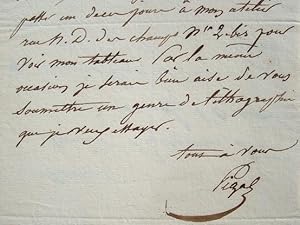 passer un deces jours à mon atelier
rue N. D. des champs No 2. bis pour
voir mon tableau par la meme
occasion je serais bien aise de vous
soumettre un genre de lithographie
que je veux essayer.
tout à vous
Pigal